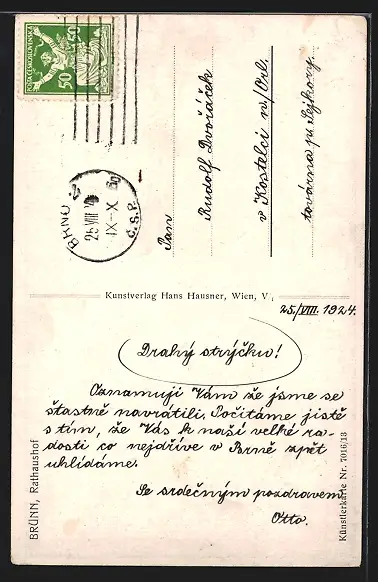 POŠTA ČESKOSLOVENSKÁ
50 50
BRNO 2
25 VIII
IX-X
Č.S.P.
Pan
Rudolf Dvořáček
v Kostelci n/Orl.
továrna pí Sejkory.
Kunstverlag Hans Hausner, Wien, V
25./VIII. 1924.
Drahý strýčku!
Oznamuji Vám že jsme se
šťastně navrátili. Počítáme jistě
s tím, že Vás k naší velké ra-
dosti co nejdříve v Brně zpět
uhlídáme.
Se srdečným pozdravem
Otto.
BRÜNN, Rathaushof
Künstlerkarte Nr. 7016/13